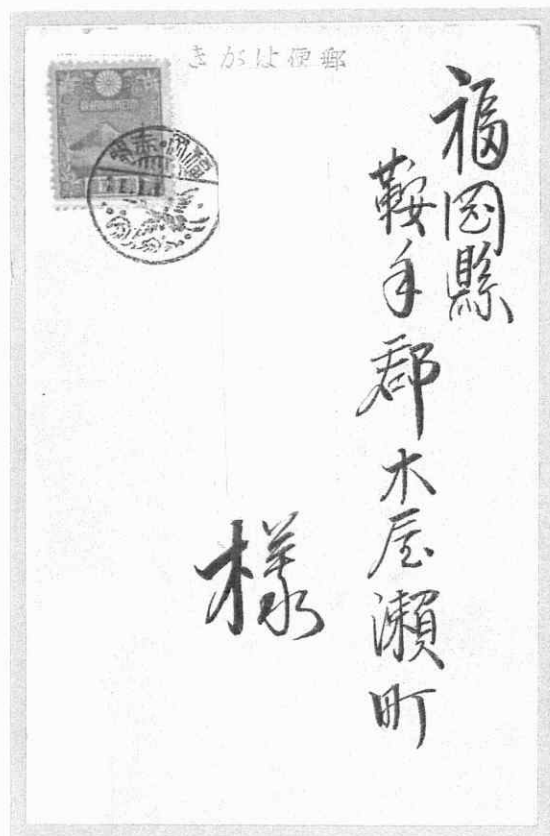 郵便はがき
福岡縣
鞍手郡木屋瀬町
様